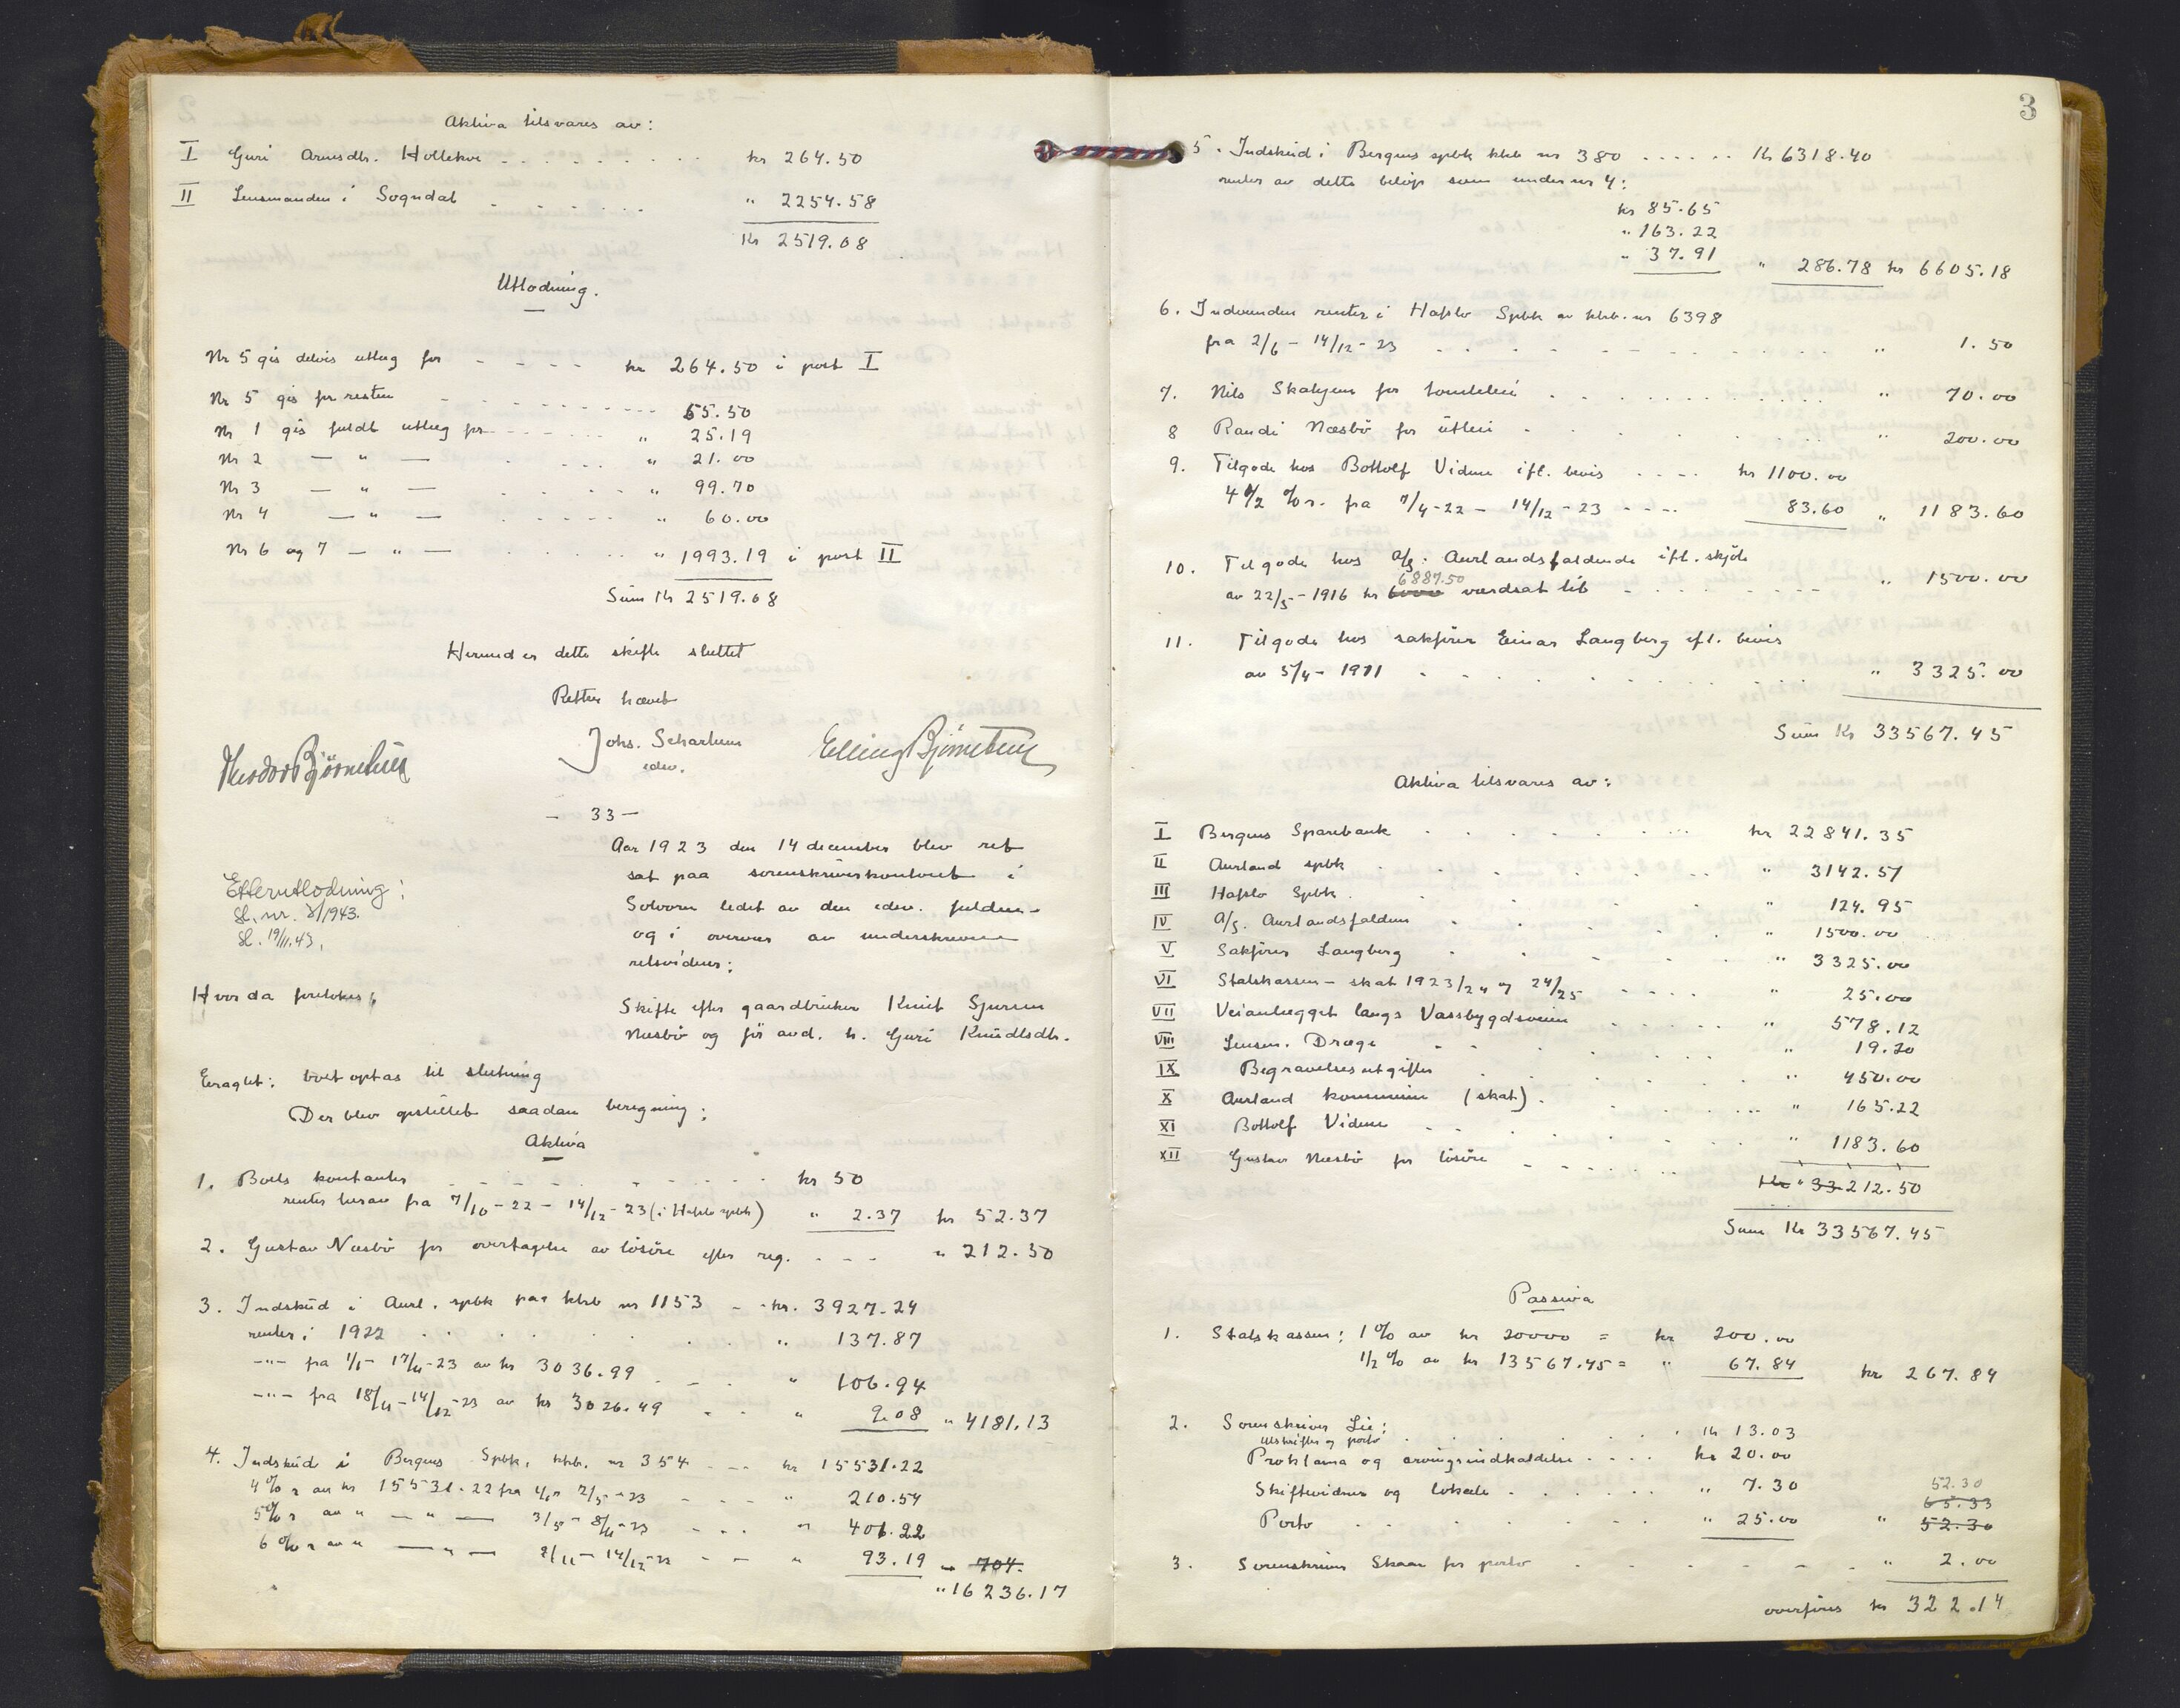 Aktiva tilsvares av:
I Guri Arnesdtr. Hollekve - - - - - - kr 264.50
II Lensmanden i Sogndal - - - - - " 2254.58
Kr 2519.08
Utlodning.
Nr 5 gis delvis utlæg for - - - - kr 264.50 i post I
Nr 5 gis for resten - - - - - - 55.50
Nr 1 gis fuldt utlæg for - - - - " 25.19
Nr 2 — " — - - - - " 21.00
Nr 3 — " — - - - - " 99.70
Nr 4 — " — - - - - " 60.00
Nr 6 og 7 — " — - - - - " 1993.19 i post II
Sum Kr 2519.08
Hermed er dette skifte sluttet
Retten hævet
Johs. Scharlum
edsv.
Elling Bjørnetun
Theodor Bjørnetun
- 33 -
Aar 1923 den 14 december blev ret
sat paa sorenskriverkontoret i
Solvorn ledet av den edsv. fuldm-
og i overvær av underskrevne
retsvidner:
Efterutlodning:
Sl. nr. 8/1943.
Sl. 19/11.43.
Hvor da foretokes:
Skifte efter gaardbruker Knut Sjursen
Næsbö og för avd. h. Guri Knudtsdtr.
Eragtet: boet optas til slutning
Der blev opstillet saadan beregning:
Aktiva
1. Boets kontanter - - - - - - kr 50
renter herav fra 7/10-22 - 14/12-23 (i Hafslo spbk) " 2.37 kr 52.37
2. Gustav Næsbö for overtagelse av lösöre efter reg. - - - " 212.50
3. Indskud i Aurl. spbk paa kbk nr 1153 - - kr. 3927.24
renter i 1922 . . . . . . " 137.87
-"- fra 1/1 - 17/11-23 av kr 3036.99 . - - . " 106.94
-"- fra 18/11 - 14/12-23 av kr 3026.49 . - " 9.08 " 4181.13
4. Indskud i Bergens Spbk. kbk. nr 354 - - - kr 15531.22
4% r av kr 15531.22 fra 1/1 - 2/5-23 - - - " 210.54
5% r av " — " — 3/5 - 8/11-23 - - - " 401.22
6% r av " — " — 9/11 - 14/12-23 - - " 93.19 " 704.
" 16236.17
3
5. Indskud i Bergens spbk kbk nr 380 . . . . . . Kr 6318.40
renter av dette belöp som under nr 4:
kr 85.65
" 163.22
" 37.91 " 286.78 kr 6605.18
6. Indvundne renter i Hafslo Spbk av kbk. nr 6398
fra 2/6 - 14/12-23 . . . . . . . . " 1.50
7. Nils Skahjem for tomteleie . . . . . . " 70.00
8 Randi Næsbö for utleie . . . . . . " 200.00
9. Tilgode hos Bottolf Vidme ifl. bevis . . . . kr 1100.00
4 1/2 % r. fra 7/4-22 - 14/12-23 - - - - 83.60 " 1183.60
10. Tilgode hos A/S: Aurlandsfaldene ifl. skjöte
6887.50
av 22/5-1916 kr 6000 værdsat til - - - - - " 1500.00
11. Tilgode hos sakförer Einar Langberg efl. bevis
av 5/4-1921 . . . . . . . . " 3325.00
Sum Kr 33567.45
Aktiva tilsvares av:
I Bergens Sparebank . . . . . . kr 22841.35
II Aurland spbk . . . . . . " 3142.51
III Hafslo Spbk. . . . . . . " 124.95
IV A/S. Aurlandsfaldene . . . . . . " 1500.00
V Sakförer Langberg . . . . . . " 3325.00
VI Statskassen - skat 1923/24 og 24/25 - - - - " 25.00
VII Veianlægget langs Vassbygdsveien . . . . . " 578.12
VIII Lensm. Dræge . . . . . . " 19.20
IX Begravelsesutgifter . . . . . . " 450.00
X Aurland kommune (skat) . . . . . . " 165.22
XI Bottolf Vidme . . . . . . " 1183.60
XII Gustav Næsbö for lösöre - - - - - Kr " 33 212.50
Sum Kr 33567.45
Passiva
1. Statskassen: 1% av kr 20000 = kr 200.00
1/2 % av kr 13567.45 = " 67.84 kr 267.84
2. Sorenskriver Lie:
Utskrifter og porto . . . . . . Kr 13.03
Proklama og arvingsindkaldelse . . . . kr 20.00
Skiftevidner og lokale . . . . . . " 7.30 52.30
65.33
Porto . . . . . . " 25.00 " 52.30
3. Sorenskriver Skaar for porto - - - - - " 2.00
overföres kr 322.14